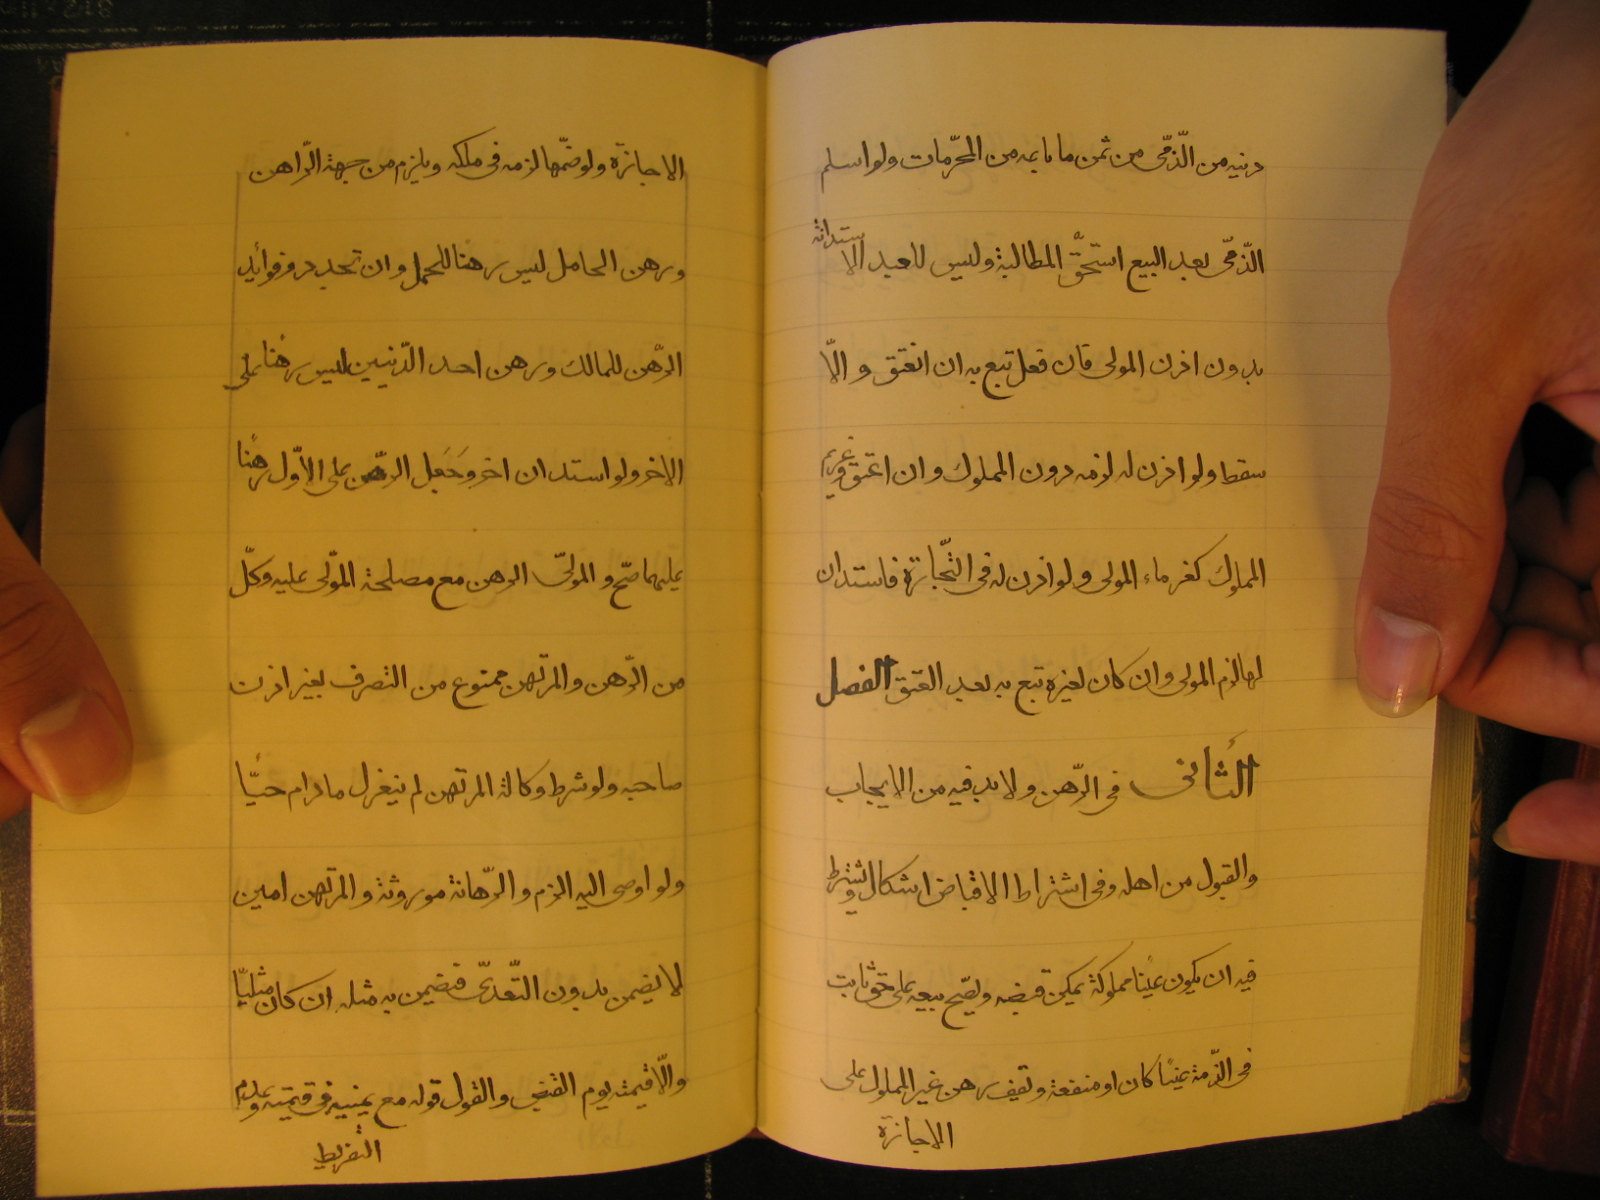 دينه من الذّمّى من ثمن ما باعه من المحرّمات ولو اسلم
الذّمّى بعد البيع استحقّ المطالبة وليس للعبد الاستدانة
بدون اذن المولى فان فعل تبع به ان انعتق والّا
سقط ولو اذن له لزمه دون المملوك وان اعتق وغريم
المملوك كغرماء المولى ولو اذن له فى التّجارة فاستدان
لها لزم المولى وان كان لغيره تبع به بعد العتق الفصل
الثانى فى الرّهن ولا بد فيه من الايجاب
والقبول من اهله وفى اشتراط الاقباض اشكال ويشترط
فيه ان يكون عينا مملوكة يمكن قبضه ويصّح بيعه على حق ثابت
فى الذّمة عينا كان او منفعة وتقف رهن غير المملوك على
الاجازة
الاجازة ولو ضمّها لزمه فى ملكه ويلزم من جهة الرّاهن
ورهن الحامل ليس رهنا للحمل وان تجدد وفوائد
الرّهن للمالك ورهن احد الدّينين ليس رهنا على
الاخر ولو استدان اخر وجَعَل الرهن على الاوّل رهنا
عليهما صّح و المولىّ الرهن مع مصلحة المولّى عليه وكلّ
من الرّاهن والمرتهن ممنوع من التصرف بغير اذن
صاحبه ولو شرط وكالة المرتهن لم ينعزل ما دام حيّا
ولو اوصى اليه الزم والرّهانة موروثة والمرتهن امين
لا يضمن بدون التّعدىّ فيضمن به مثله ان كان مثليّا
والّا قيمته يوم القبض والقول قوله مع يمينه فى قيمته وعدم
التفريط